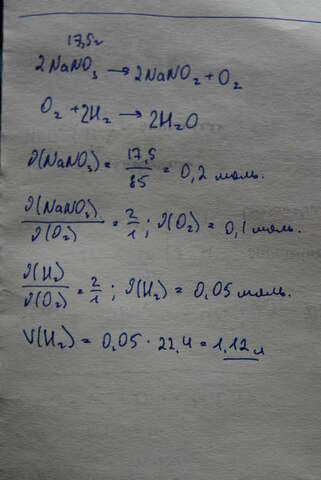 17,5г
2NaNO₃ → 2NaNO₂ + O₂
O₂ + 2H₂ → 2H₂O
ν(NaNO₃) = 17,5/85 = 0,2 моль.
ν(NaNO₃)/ν(O₂) = 2/1 ; ν(O₂) = 0,1 моль.
ν(H₂)/ν(O₂) = 2/1 ; ν(H₂) = 0,05 моль.
V(H₂) = 0,05 · 22,4 = 1,12 л